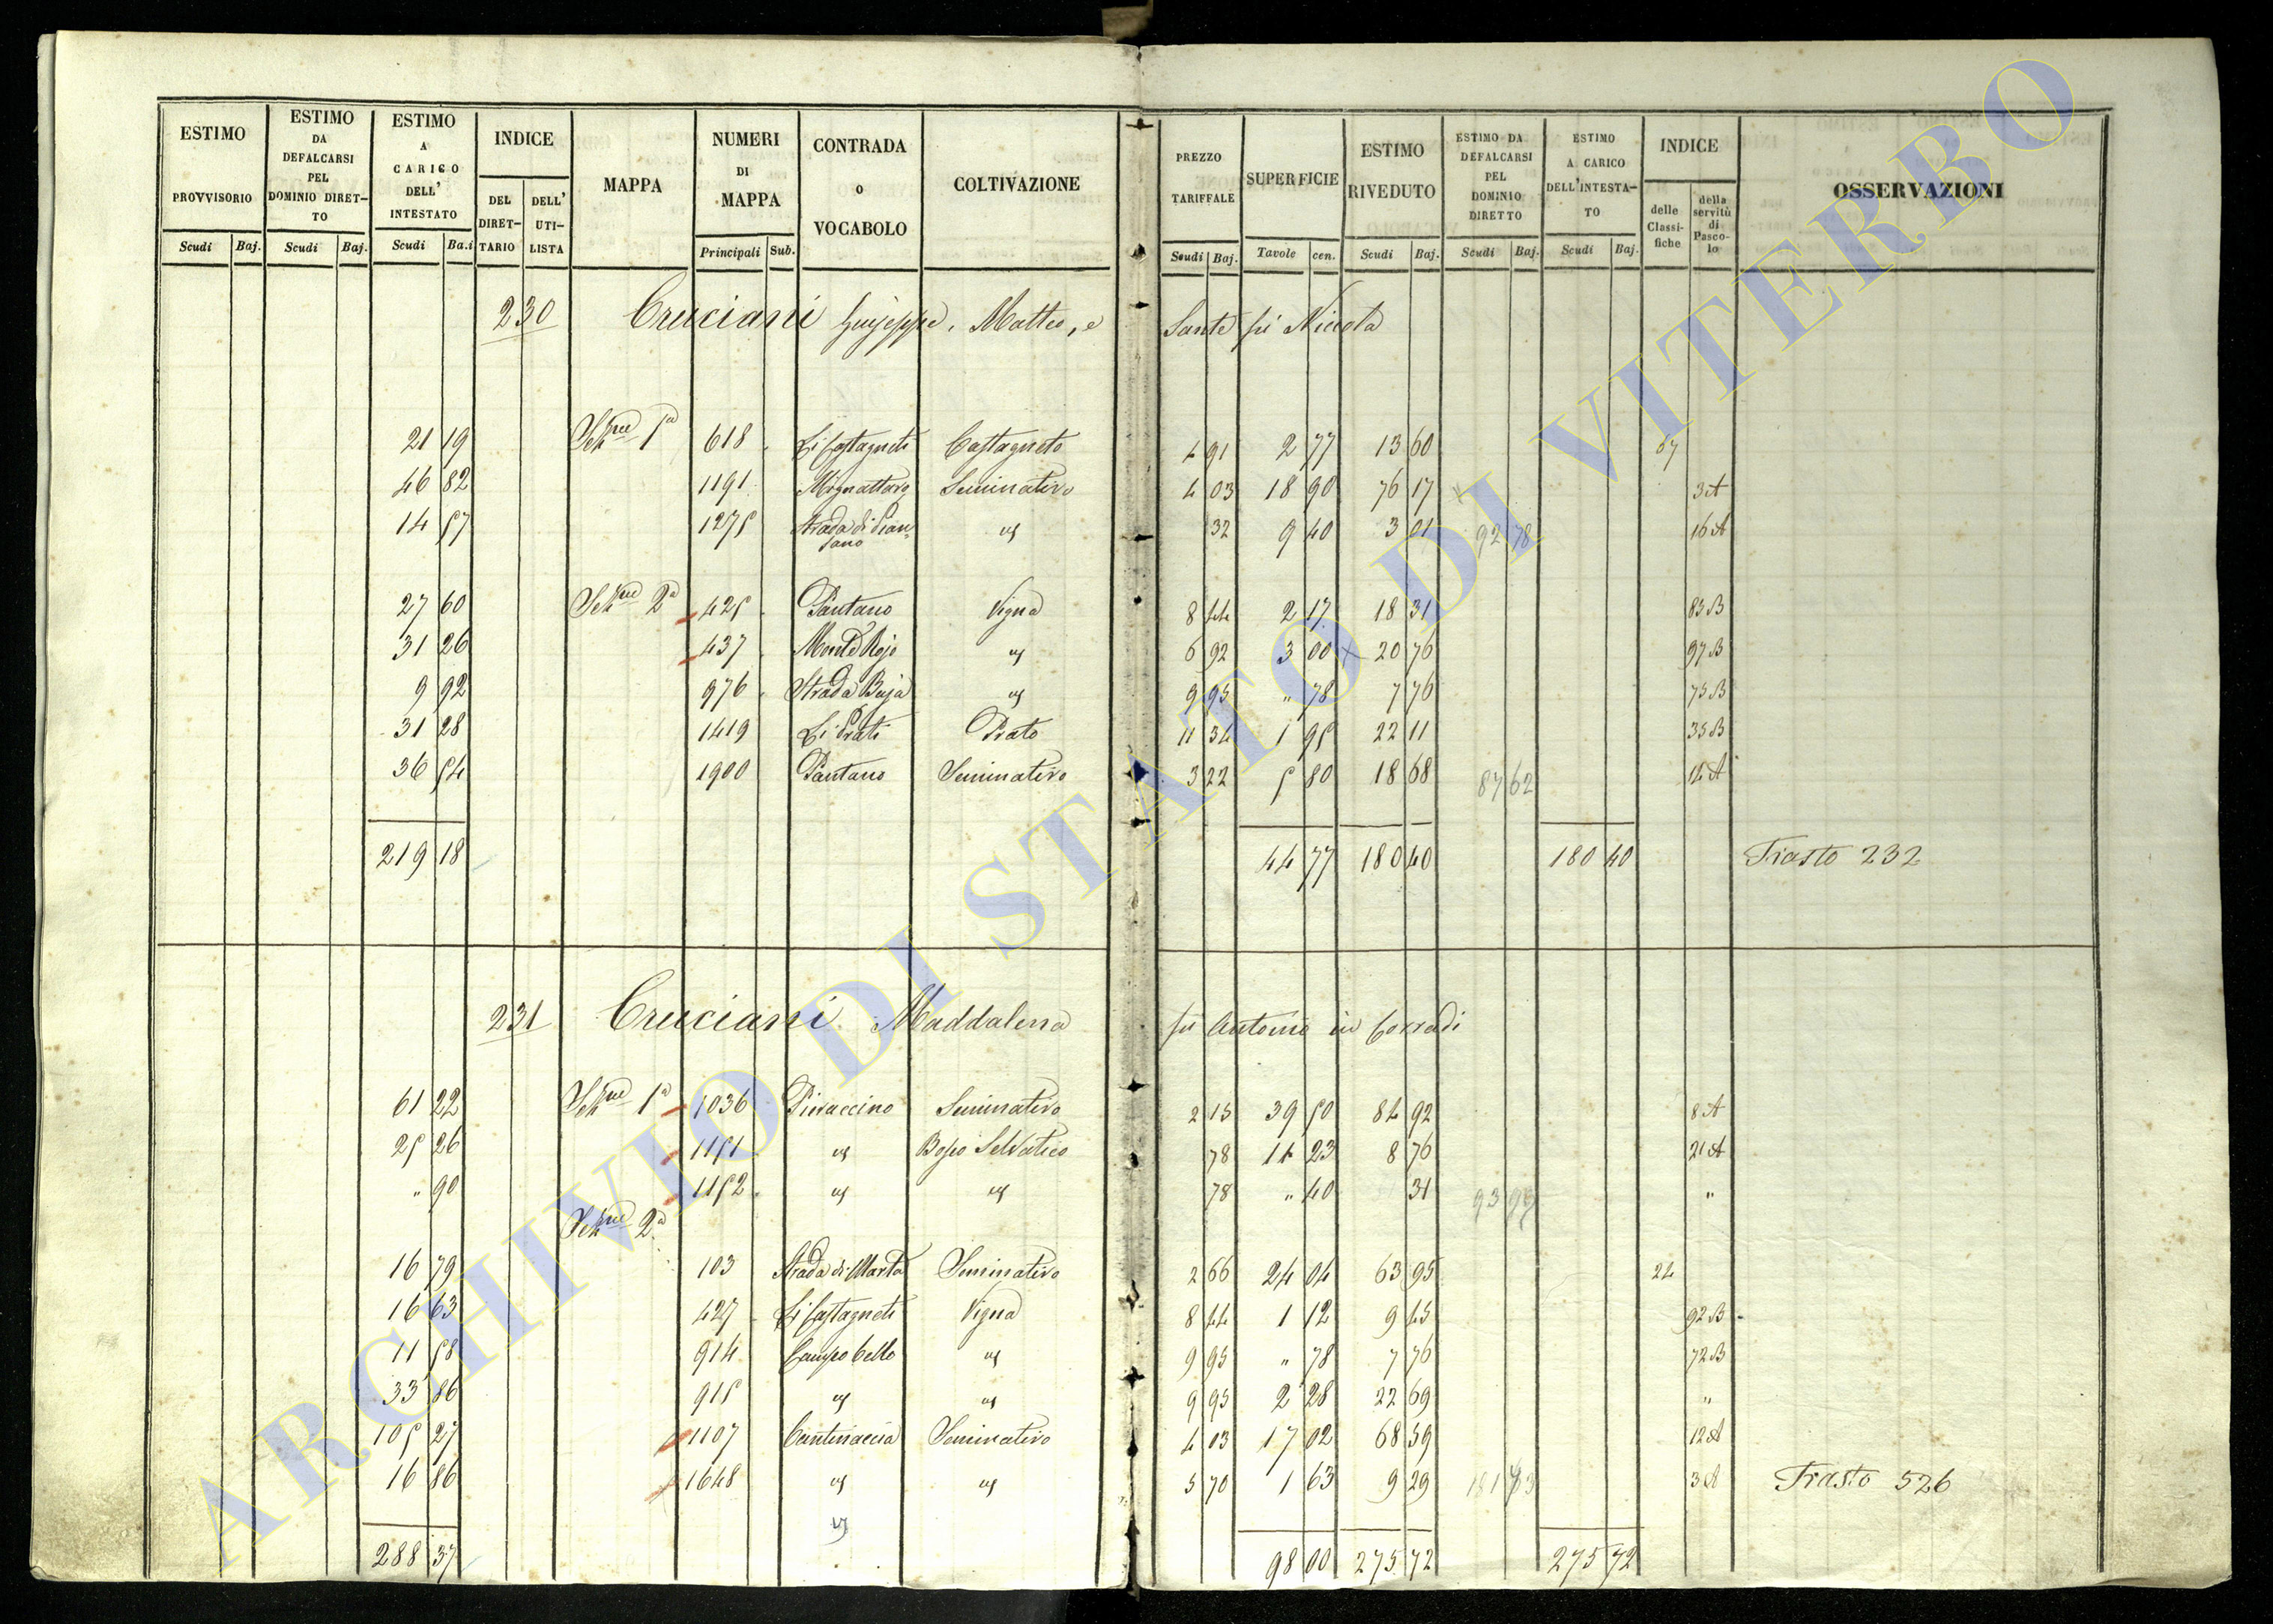 ESTIMO PROVVISORIO Scudi Baj.
ESTIMO DA DEFALCARSI PEL DOMINIO DIRET-TO Scudi Baj.
ESTIMO A CARICO DELL' INTESTATO Scudi Ba.i
INDICE DEL DIRET-TARIO DELL' UTI-LISTA
MAPPA
NUMERI DI MAPPA Principali Sub.
CONTRADA o VOCABOLO
COLTIVAZIONE
PREZZO TARIFFALE Scudi Baj.
SUPERFICIE Tavole cen.
ESTIMO RIVEDUTO Scudi Baj.
ESTIMO DA DEFALCARSI PEL DOMINIO DIRETTO Scudi Baj.
ESTIMO A CARICO DELL'INTESTA-TO Scudi Baj.
INDICE delle Classi-fiche della servitù di Pasco-lo
OSSERVAZIONI
230 Cruciani Giuseppe, Matteo, e Sante fu Niccola
21 19 Sez.ne 1a 618 Li Castagneti Castagneto 4 91 2 77 13 60 67
46 82 1191 Mignattara Seminativo 4 03 18 90 76 17 3 A
14 57 1275 Strada di Pian=sano " 32 9 40 3 01 92 78 16 A
27 60 Sez.ne 2a 425 Pantano Vigna 8 44 2 17 18 31 83 B
31 26 437 Monte Rojo " 6 92 3 00 20 76 97 B
9 92 976 Strada Buja " 9 95 " 78 7 76 75 B
31 28 1419 Li Prati Prato 11 34 1 95 22 11 35 B
36 54 1900 Pantano Seminativo 3 22 5 80 18 68 87 62 14 A
219 18 44 77 180 40 180 40 Trasto 232
231 Cruciani Maddalena fu Antonio in Corradi
61 22 Sez.ne 1a 1036 Pieraccino Seminativo 2 15 39 50 84 92 8 A
25 26 1151 " Bosco Selvatico 78 11 23 8 76 21 A
" 90 1152 " " 78 " 40 31 93 99 "
Sez.ne 2a
16 79 103 Strada di Marta Seminativo 2 66 24 04 63 95 24
16 63 427 Li Castagneti Vigna 8 44 1 12 9 45 92 B
11 58 914 Campo Cello " 9 95 " 78 7 76 72 B
33 86 915 " " 9 95 2 28 22 69 "
105 27 1107 Cantinaccia Seminativo 4 03 17 02 68 59 12 A
16 86 1648 " " 5 70 1 63 9 29 181 73 3 A Trasto 526
"
288 37 98 00 275 72 275 72
ARCHIVIO DI STATO DI VITERBO